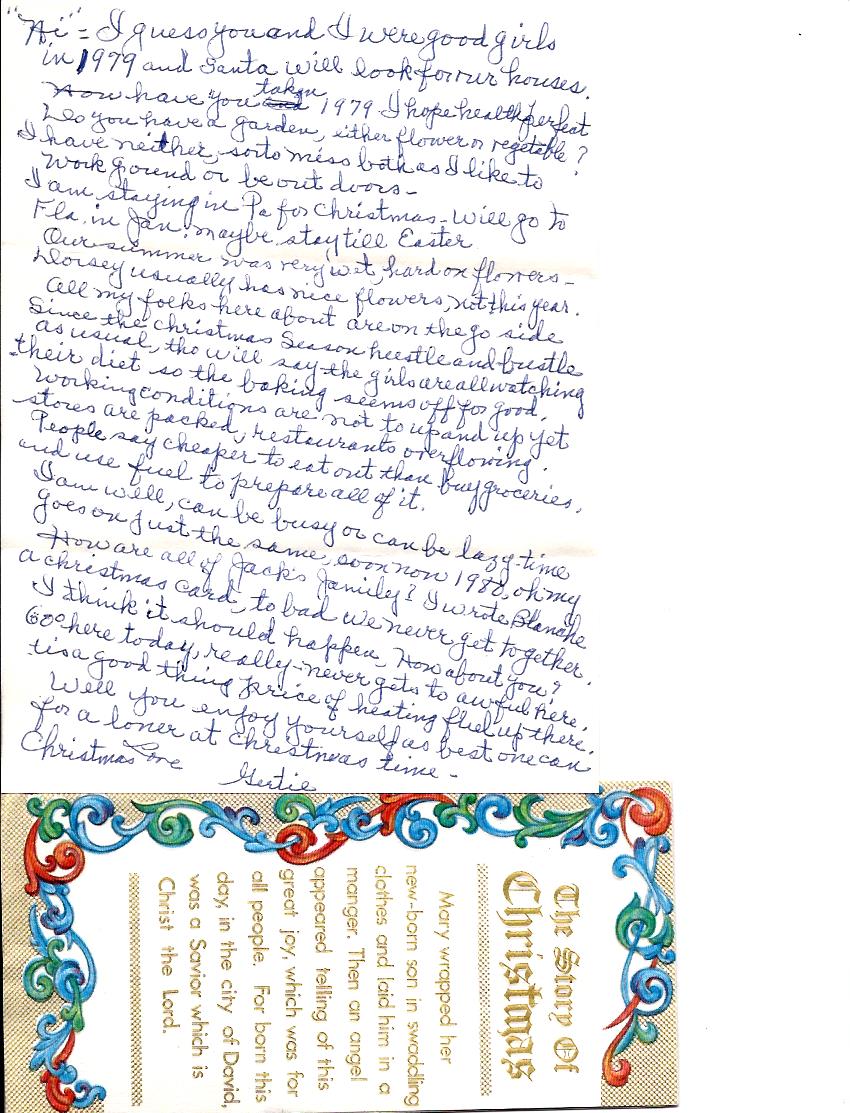 "Hi" = I guess you and I were good girls
in 1979 and Santa will look for our houses.
How have you taken 1979 I hope health perfect
Do you have a garden, either flower or vegetable?
I have neither, sorto miss both as I like to
work ground or be out doors -
I am staying in Pa for Christmas - will go to
Fla. in Jan. maybe stay till Easter
Our summer was very wet, hard on flowers -
Dorsey usually has nice flowers, not this year.
All my folks here about are on the go side
Since the Christmas Season hustle and bustle
as usual, tho will say the girls are all watching
their diet so the baking seems off for good.
Working conditions are not to up and up yet
stores are packed, restaurants overflowing.
People say cheaper to eat out than buy groceries,
and use fuel to prepare all of it.
I am well, can be busy or can be lazy - time
goes on just the same, soon now 1980, oh my
How are all of Jack's family? I wrote Blanche
a christmas card, to bad we never get together.
I think it should happen. How about you?
60° here today, really - never gets to awful here,
tis a good thing price of heating fuel up there.
Well you enjoy yourself as best one can
for a loner at Christmas time -
Christmas Love
Gertie
The Story Of
Christmas
Mary wrapped her
new-born son in swaddling
clothes and laid him in a
manger. Then an angel
appeared telling of this
great joy, which was for
all people. For born this
day, in the city of David,
was a Savior which is
Christ the Lord.